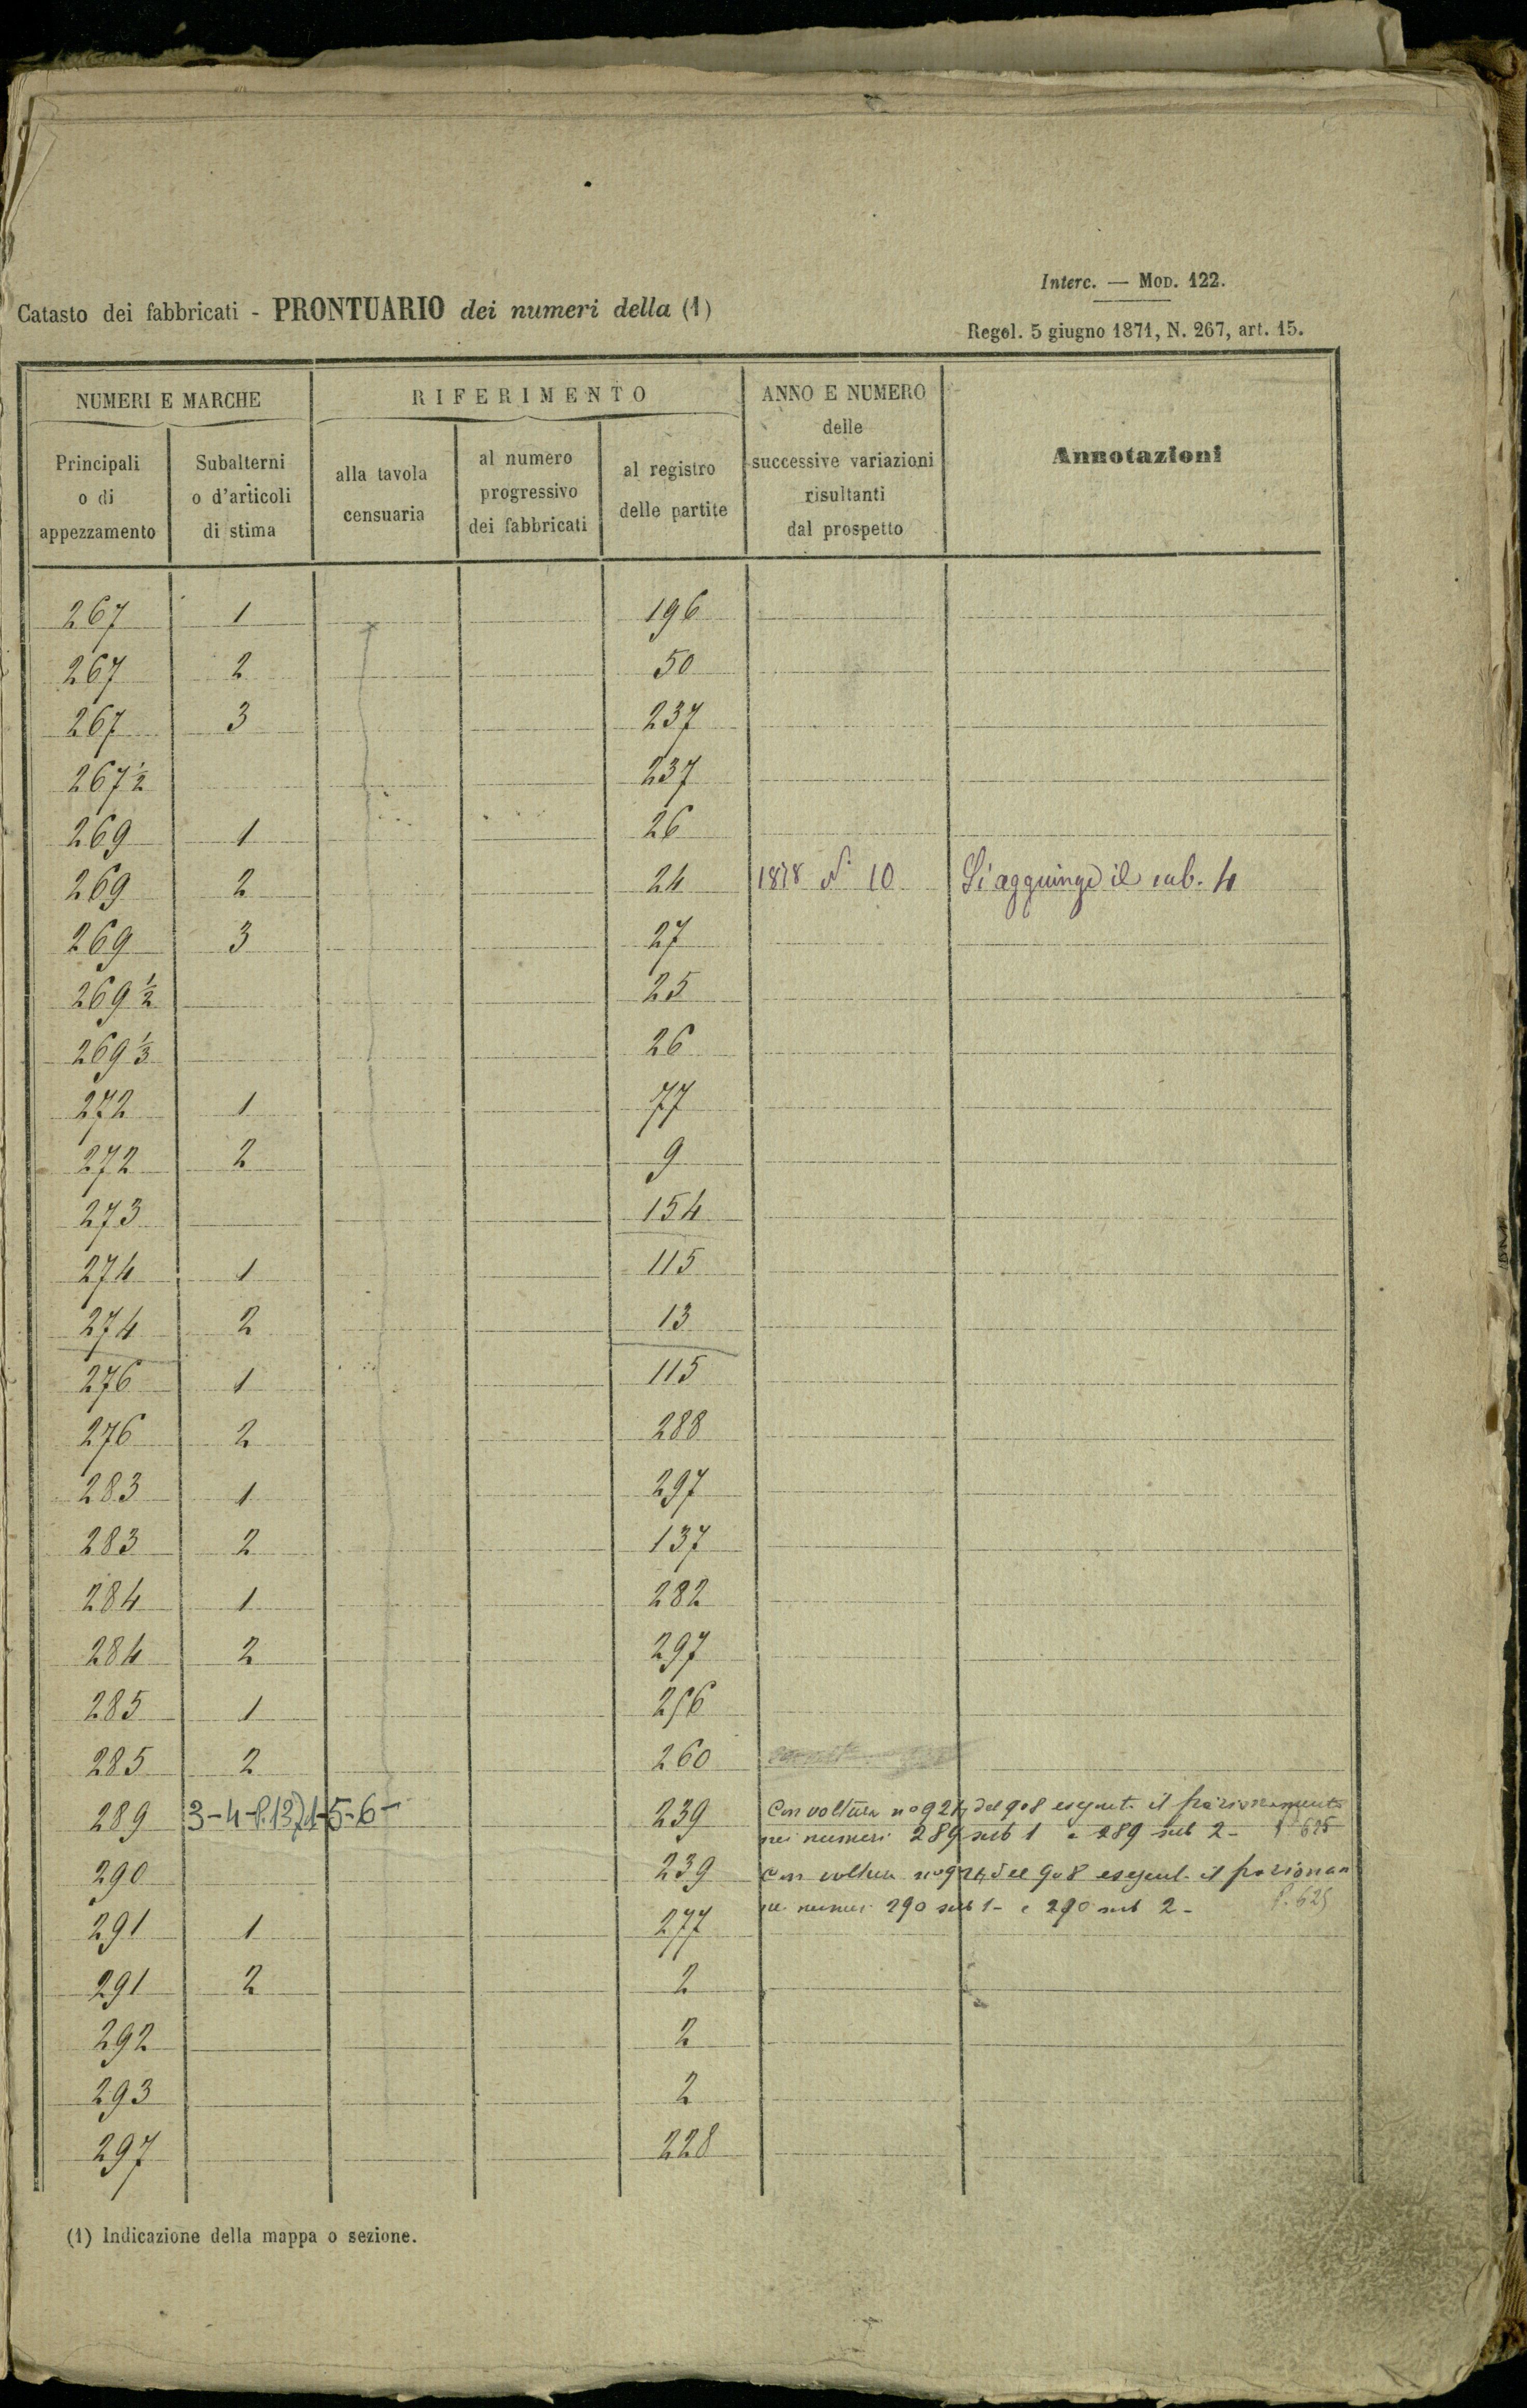 Interc. — MOD. 122.
Catasto dei fabbricati - PRONTUARIO dei numeri della (1)
Regol. 5 giugno 1871, N. 267, art. 15.
NUMERI E MARCHE
RIFERIMENTO
ANNO E NUMERO
delle
successive variazioni
risultanti
dal prospetto
Annotazioni
Principali
o di
appezzamento
Subalterni
o d'articoli
di stima
alla tavola
censuaria
al numero
progressivo
dei fabbricati
al registro
delle partite
267 1 196
267 2 50
267 3 237
267 1/2 237
269 1 26
269 2 24 1878 N. 10 Si aggiunge il sub. 4
269 3 27
269 1/2 25
269 1/3 26
272 1 77
272 2 9
273 154
274 1 115
274 2 13
276 1 115
276 2 288
283 1 297
283 2 137
284 1 282
284 2 297
285 1 256
285 2 260
289 3-4 5-6- 239 Con voltura no 921 del 908 il
nei numeri 289 sub 1 e 289 sub 2- 625
290 239 Con voltura del 908 il
numeri 290 sub 1- e 290 sub 2- P. 625
291 1 277
291 2 2
292 2
293 2
297 228
(1) Indicazione della mappa o sezione.